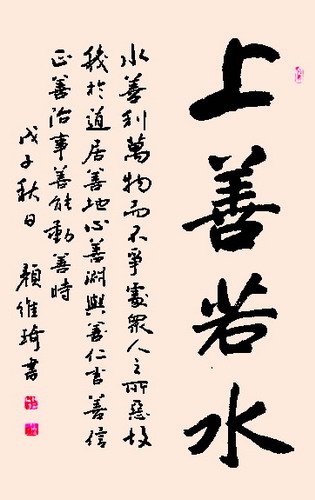 上善若水
水善利萬物而不爭處衆人之所惡故
幾於道居善地心善淵與善仁言善信
正善治事善能動善時
戊子秋日 顏維琦書